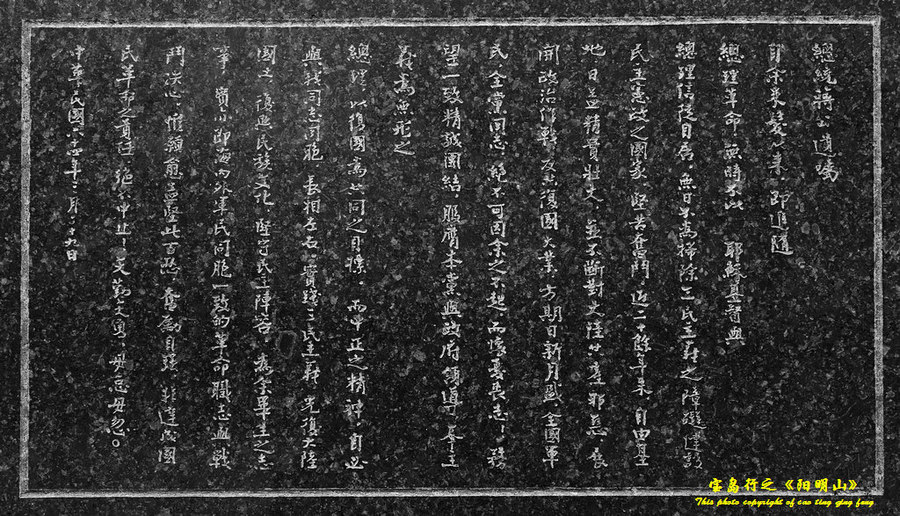 總統 蔣公遺囑
自余束髮以來,即追隨
總理革命,無時不以 耶穌基督與
總理信徒自居,無日不為掃除三民主義之障礙,建設
民主憲政之國家,堅苦奮鬥。近二十餘年來,自由基
地,日益精實壯大,並不斷對大陸共產邪惡,展
開政治作戰,反共復國大業,方期日新月盛,全國軍
民,全黨同志,絕不可因余之不起,而懷憂喪志!務
望一致精誠團結,服膺本黨與政府領導,奉主
義為無形之
總理,以復國為共同之目標,而中正之精神,自必
與我同志同胞,長相左右。實踐三民主義,光復大陸
國土,復興民族文化,堅守民主陣容,為余畢生之志
事,實亦即海內外軍民同胞一致的革命職志與戰
鬥決心。惟願愈益堅此百忍,奮勵自強,非達成國
民革命之責任,絕不中止!矢勤矢勇,毋怠毋忽。
中華民國六十四年三月二十九日
宝岛行之《阳明山》
This photo copyright of cao ting qing feng